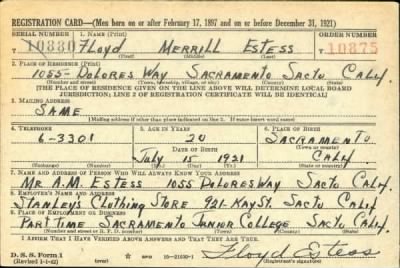 REGISTRATION CARD—(Men born on or after February 17, 1897 and on or before December 31, 1921)
SERIAL NUMBER 1. NAME (Print) ORDER NUMBER
10880 Floyd MERRILL ESTESS 10875
(First) (Middle) (Last)
2. PLACE OF RESIDENCE (Print)
1055- DOLORES WAY SACRAMENTO SACTO CALIF.
(Number and street) (Town, township, village, or city) (County) (State)
[THE PLACE OF RESIDENCE GIVEN ON THE LINE ABOVE WILL DETERMINE LOCAL BOARD
JURISDICTION; LINE 2 OF REGISTRATION CERTIFICATE WILL BE IDENTICAL]
3. MAILING ADDRESS
SAME
[Mailing address if other than place indicated on line 2. If same insert word same]
4. TELEPHONE 5. AGE IN YEARS 6. PLACE OF BIRTH
6-3301 20 SACRAMENTO
DATE OF BIRTH (Town or county)
July 15 1921 CALIF
(Exchange) (Number) (Mo.) (Day) (Yr.) (State or country)
7. NAME AND ADDRESS OF PERSON WHO WILL ALWAYS KNOW YOUR ADDRESS
MR A.M. ESTESS 1055 DOLORES WAY SACTO CALIF.
8. EMPLOYER'S NAME AND ADDRESS
STANLEY'S CLOTHING STORE 921. KAY ST. SACTO CALIF.
9. PLACE OF EMPLOYMENT OR BUSINESS
PART TIME SACRAMENTO JUNIOR COLLEGE SACTO CALIF.
(Number and street or R. F. D. number) (Town) (County) (State)
I AFFIRM THAT I HAVE VERIFIED ABOVE ANSWERS AND THAT THEY ARE TRUE.
D. S. S. Form 1
(Revised 1-1-42) GPO 16—21630-1 Floyd Estess
(Registrant's signature)